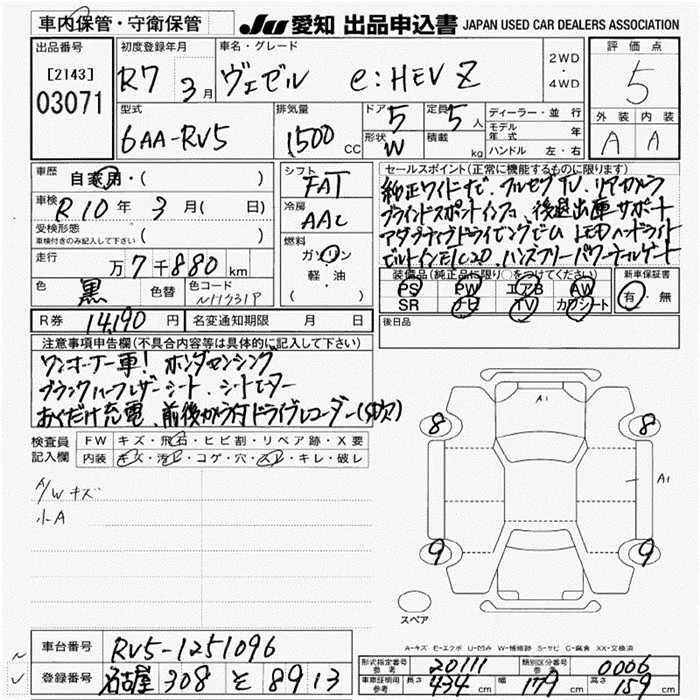 車内保管・守衛保管 JU 愛知 出品申込書 JAPAN USED CAR DEALERS ASSOCIATION
出品番号
[2143]
03071
初度登録年月
R7 3月
車名・グレード
ヴェゼル e:HEV Z
2WD
・
4WD
評価点
5
外装 内装
A A
型式
6AA-RV5
排気量
1500 CC
ドア 5
形状 W
定員 5人
積載 kg
ディーラー・並行
モデル年式 年
ハンドル 左・右
車歴
自家用・( )
車検
R10年 3月( 日)
受検形態
車検付きのみ記入して下さい ( )
走行
万7千880km
色
黒 色替
色コード
NH731P
シフト
FAT
冷房
AAC
燃料
ガソリン
軽・油
( )
セールスポイント(正常に機能するものに限ります)
純正ワイドナビ、フルセグTV、リアカメラ
ブラインドスポットインフォ、後退出庫サポート
アダプティブドライビングビーム LEDヘッドライト
ビルトインETC2.0、ハンズフリーパワーテールゲート
装備品(純正品に限り○をつけてください)
PS PW エアB AW
SR ナビ TV カワシート
新車保証書
有・無
R券 14,190円 名変通知期限 月 日
後日品
注意事項申告欄(不具合内容等は具体的に記入して下さい)
ワンオーナー車! ホンダセンシング
ブラックハーフレザーシート、シートヒーター
おくだけ充電、前後カメラ付ドライブレコーダー(SD欠)
検査員記入欄
FW キズ・飛石・ヒビ割・リペア跡・X要
内装 キズ・汚レ・コゲ・穴・スレ・キレ・破レ
A/W キズ
小A
A1
8 8
A1
9 9
スペア
A-キズ E-エクボ U-凹み W-補修跡 S-サビ C-腐食 XX-交換済
車台番号 RV5-1251096
登録番号 名古屋 308 そ 8913
形式指定番号 参考 20111 類別区分番号 参考 0006
車車証明用 参考 長さ 434cm 幅 179cm 高さ 159cm